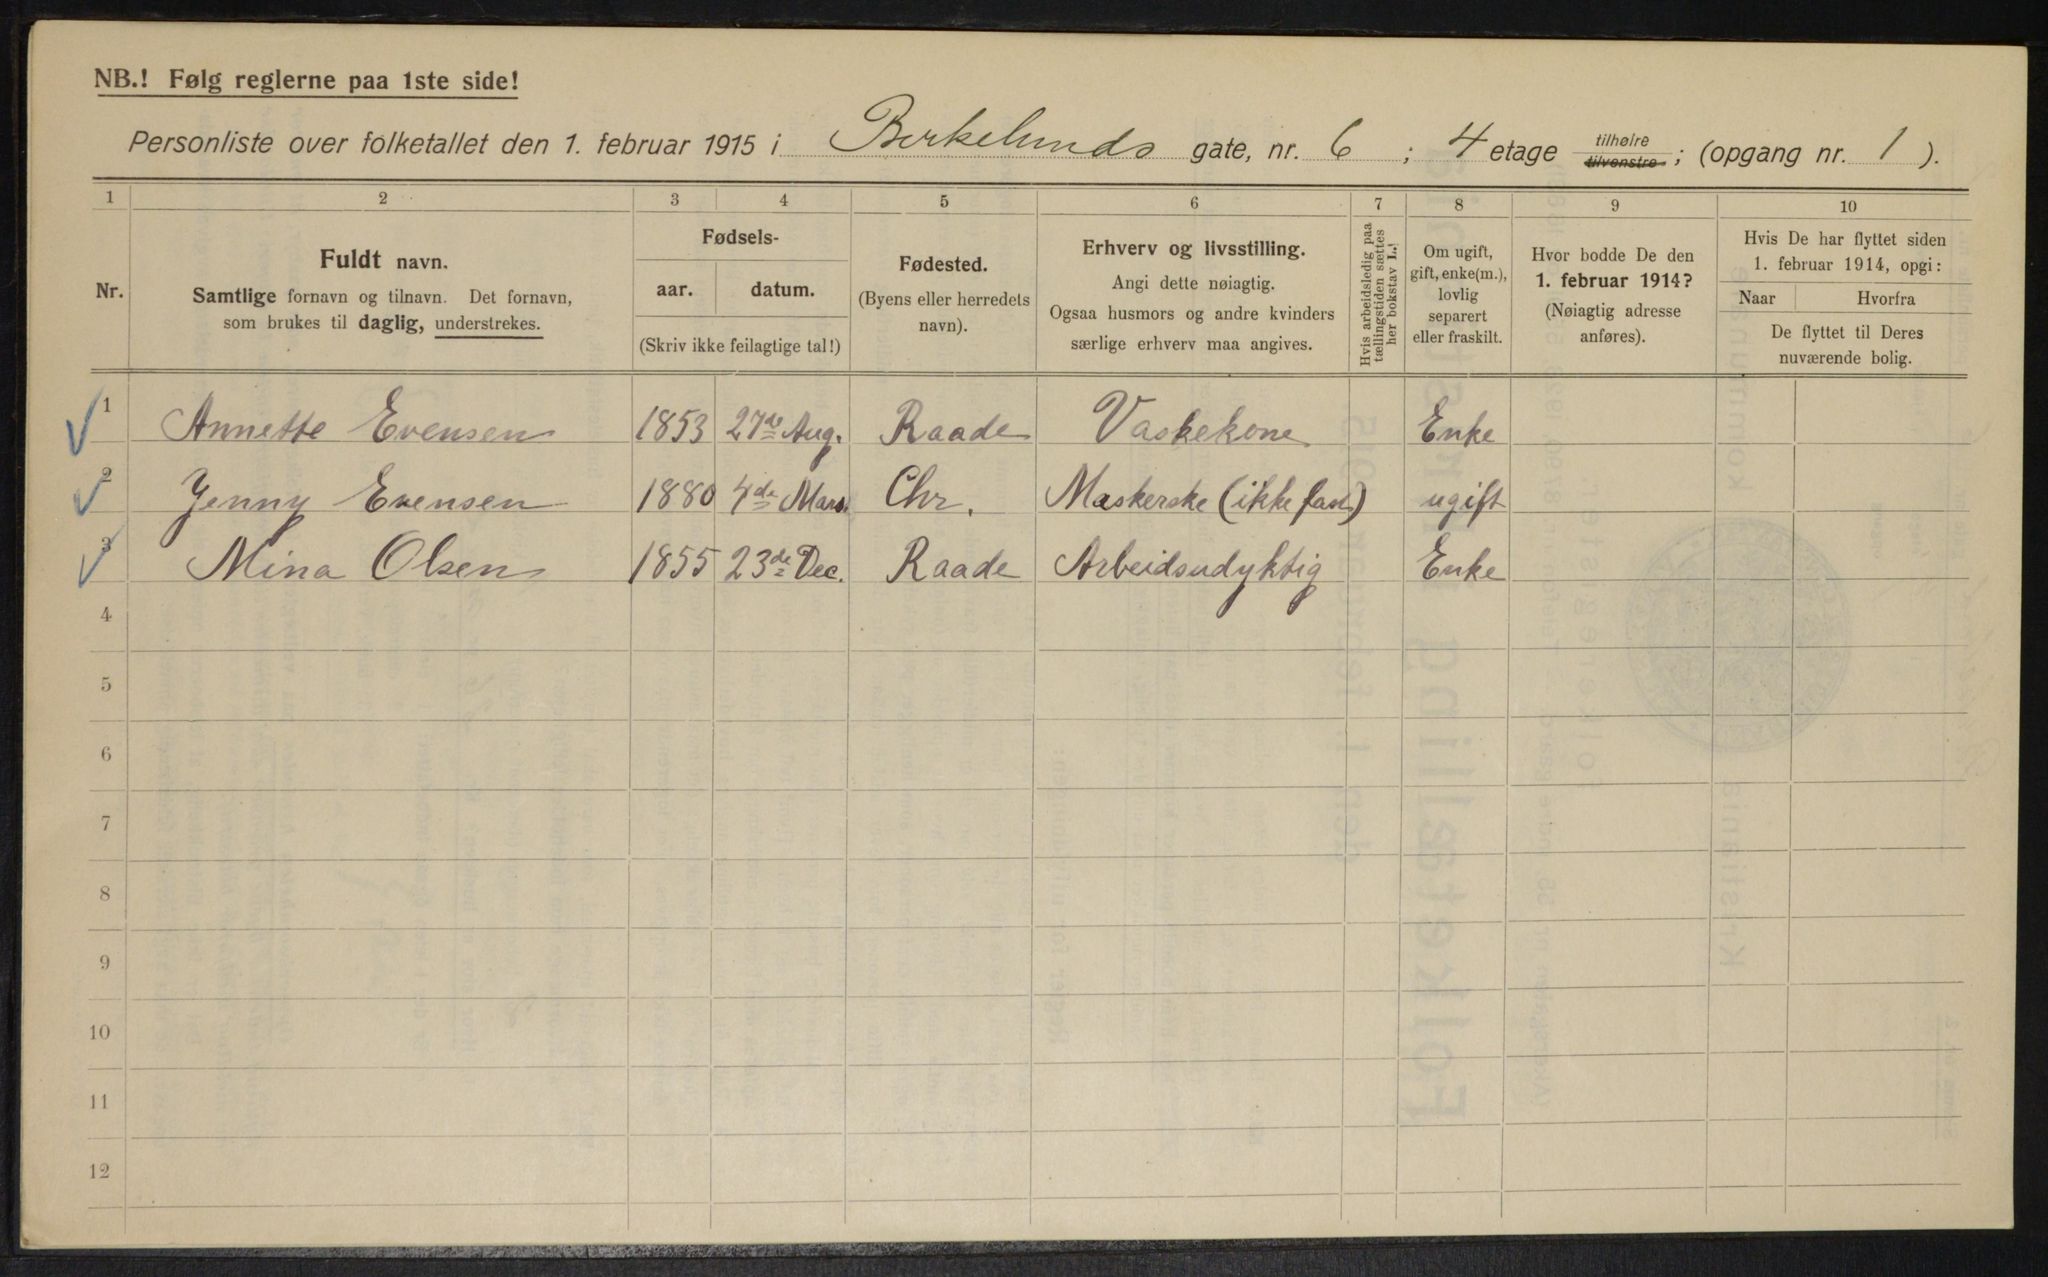 NB.! Følg reglerne paa 1ste side!
Personliste over folketallet den 1. februar 1915 i Birkelunds gate, nr. 6 ; 4 etage tilhøire tilvenstre ; (opgang nr. 1 ).
1 2 3 4 5 6 7 8 9 10
Nr.
Fuldt navn.
Samtlige fornavn og tilnavn. Det fornavn,
som brukes til daglig, understrekes.
Fødsels-
aar. datum.
(Skriv ikke feilagtige tal!)
Fødested.
(Byens eller herredets
navn).
Erhverv og livsstilling.
Angi dette nøiagtig.
Ogsaa husmors og andre kvinders
særlige erhverv maa angives.
Hvis arbeidsledig paa
tællingstiden sættes
her bokstav L.!
Om ugift,
gift, enke(m.),
lovlig
separert
eller fraskilt.
Hvor bodde De den
1. februar 1914?
(Nøiagtig adresse
anføres).
Hvis De har flyttet siden
1. februar 1914, opgi:
Naar Hvorfra
De flyttet til Deres
nuværende bolig.
1 Annette Evensen 1853 27de Aug. Raade Vaskekone Enke
2 Jenny Evensen 1880 4de Mars. Chr. (ikke fast) ugift
3 Mina Olsen 1855 23de Dec. Raade Arbeidsudyktig Enke
4
5
6
7
8
9
10
11
12